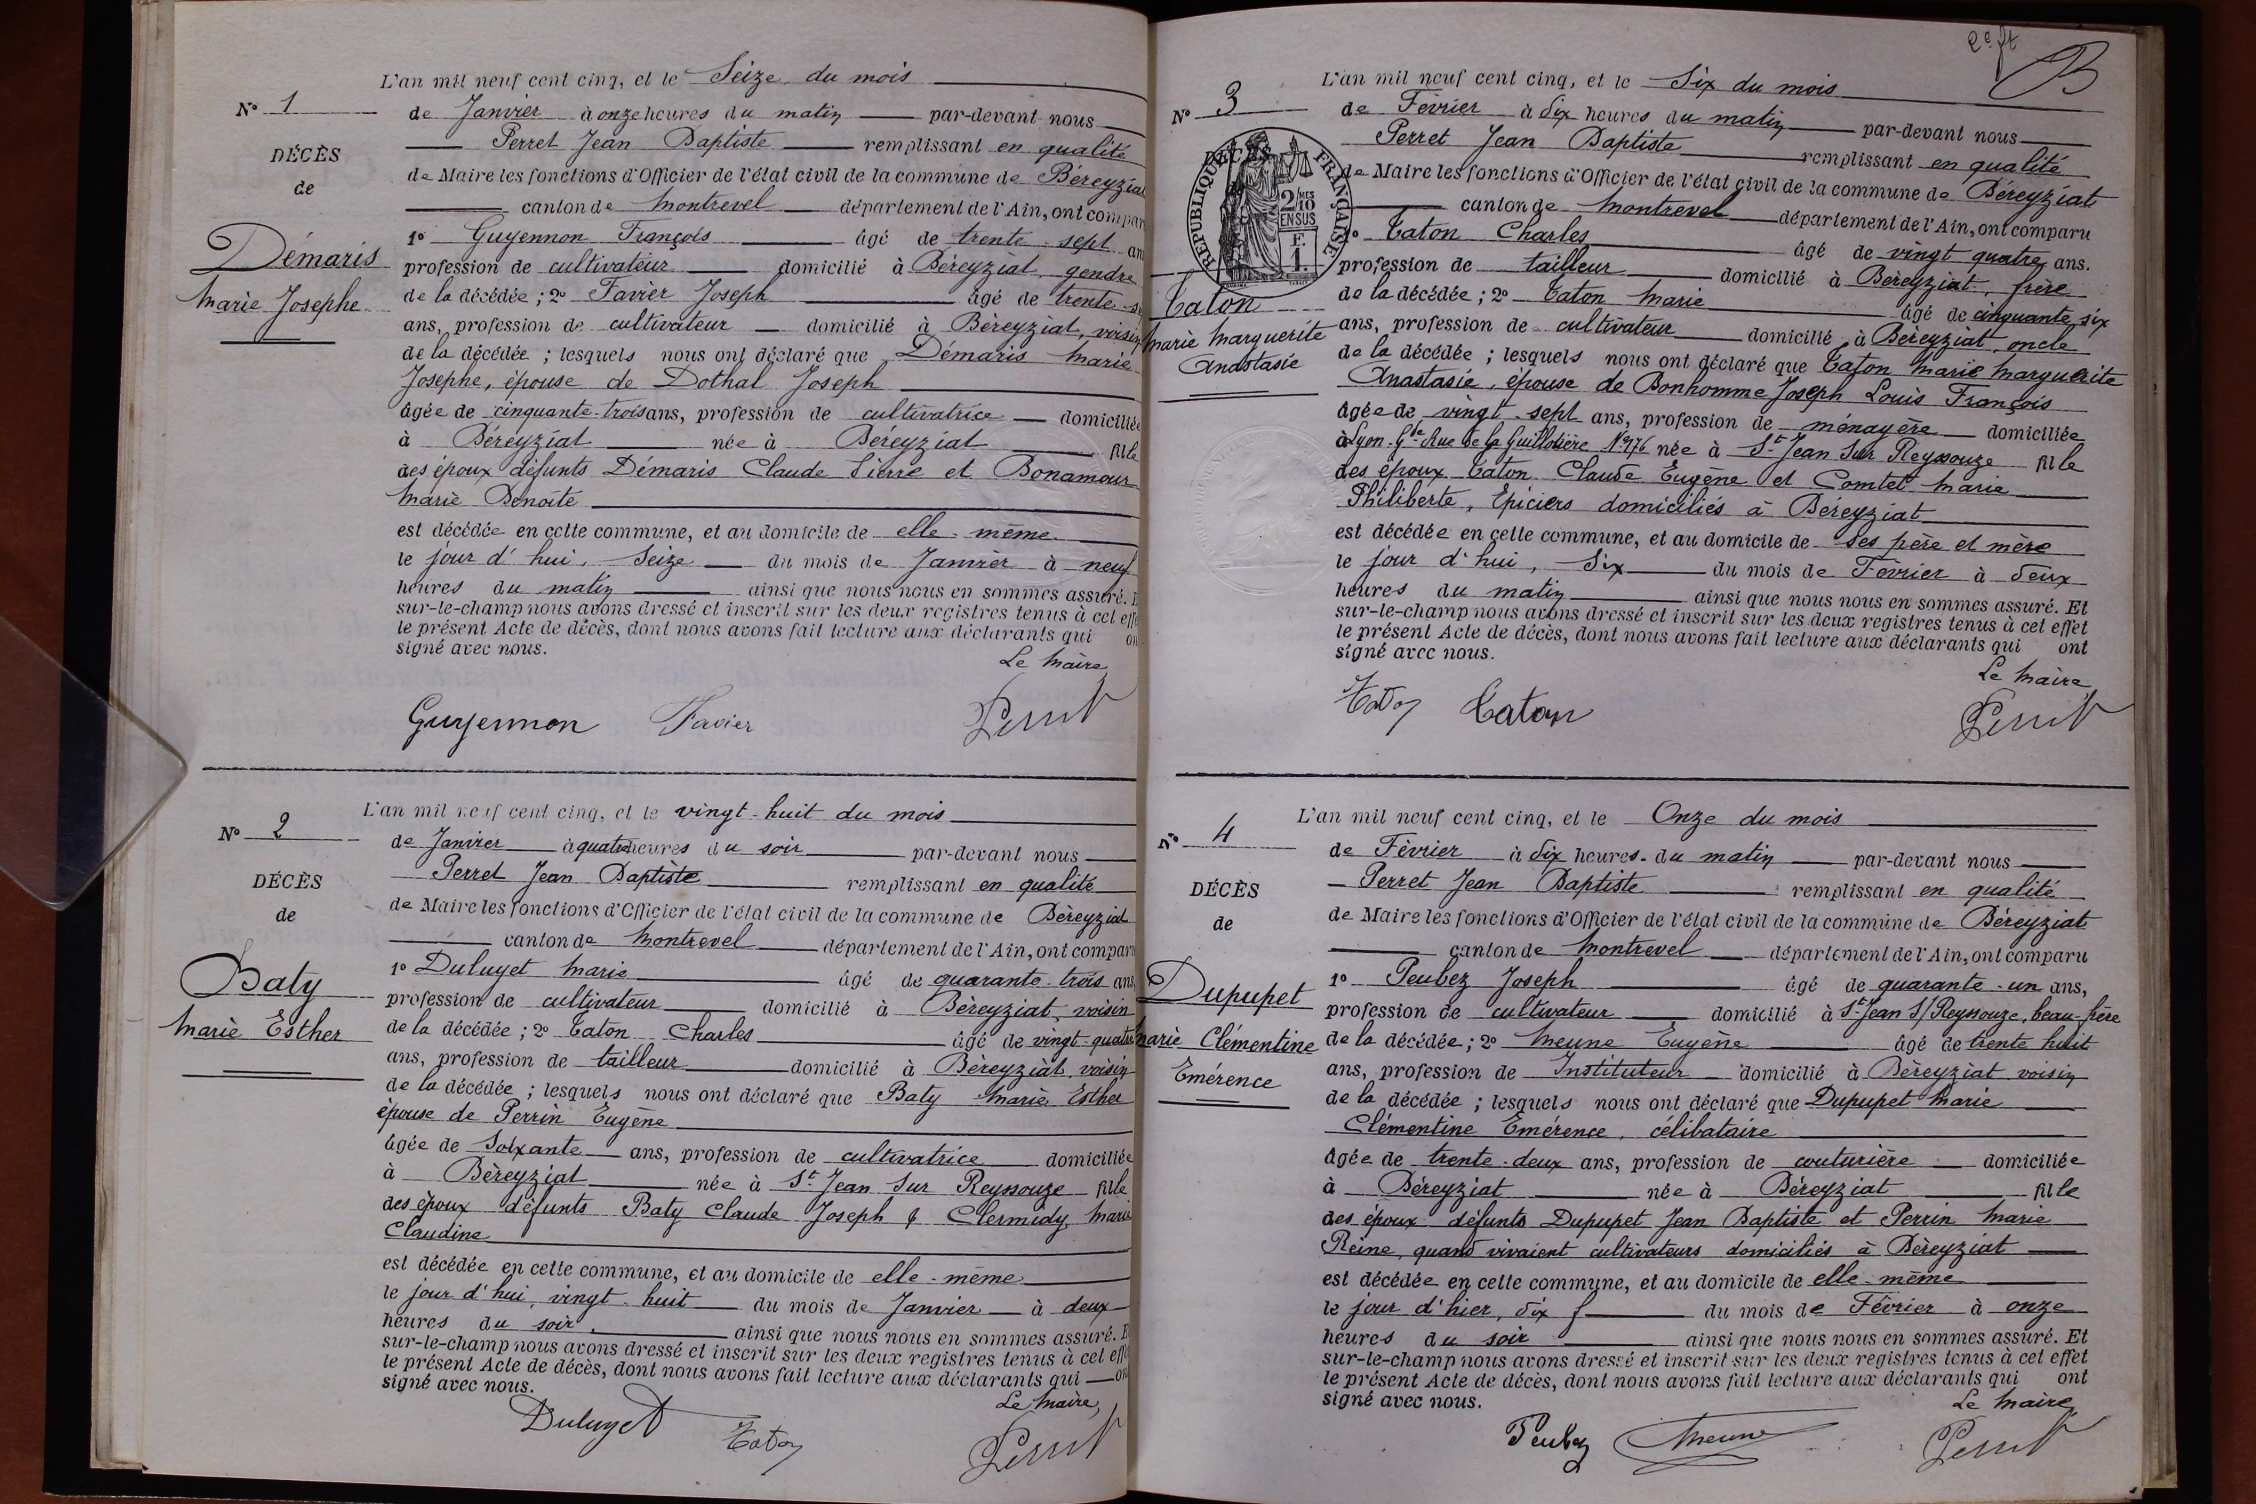 L'an mil neuf cent cinq, et le Seize du mois
N° 1
de Janvier à onze heures du matin par-devant nous
Perret Jean Baptiste remplissant en qualité
DÉCÈS
de Maire les fonctions d'Officier de l'état civil de la commune de Béreyziat
de
canton de Montrevel département de l'Ain, ont compar
1° Guyennon François âgé de trente-sept an
Démaris
profession de cultivateur domicilié à Béreyziat, gendre
Marie Josephe
de la décédée; 2° Favier Joseph âgé de trente
ans, profession de cultivateur domicilié à Béreyziat, voisin
de la décédée; lesquels nous ont déclaré que Démaris Marie
Josephe, épouse de Dothal Joseph
âgée de cinquante-trois ans, profession de cultivatrice domiciliée
à Béreyziat née à Béreyziat fille
des époux défunts Démaris Claude Pierre et Bonamour
Marie Benoite
est décédée en cette commune, et au domicile de elle-même
le jour d'hui, Seize du mois de Janvier à neuf
heures du matin ainsi que nous nous en sommes assuré. E
sur-le-champ nous avons dressé et inscrit sur les deux registres tenus à cet effe
le présent Acte de décès, dont nous avons fait lecture aux déclarants qui on
signé avec nous.
Le Maire,
Guyennon Favier Perret
L'an mil neuf cent cinq, et le vingt-huit du mois
N° 2
de Janvier à quatre heures du soir par-devant nous
Perret Jean Baptiste remplissant en qualité
DÉCÈS
de Maire les fonctions d'Officier de l'état civil de la commune de Béreyziat
de
canton de Montrevel département de l'Ain, ont comparu
1° Duluyet Marie âgé de quarante-trois ans,
Baty
profession de cultivateur domicilié à Béreyziat, voisin
Marie Esther
de la décédée; 2° Caton Charles âgé de vingt-quatre
ans, profession de tailleur domicilié à Béreyziat, voisin
de la décédée; lesquels nous ont déclaré que Baty Marie Esther
épouse de Perrin Eugène
âgée de Soixante ans, profession de cultivatrice domiciliée
à Béreyziat née à St Jean Sur Reyssouze fille
des époux défunts Baty Claude Joseph & Clermidy Marie
Claudine
est décédée en cette commune, et au domicile de elle-même
le jour d'hui, vingt-huit du mois de Janvier à deux
heures du soir, ainsi que nous nous en sommes assuré. E
sur-le-champ nous avons dressé et inscrit sur les deux registres tenus à cet effe
le présent Acte de décès, dont nous avons fait lecture aux déclarants qui on
signé avec nous.
Le Maire,
Duluyet Caton Perret
2e ft
B
L'an mil neuf cent cinq, et le Six du mois
N° 3
de Février à dix heures du matin par-devant nous
Perret Jean Baptiste remplissant en qualité
DÉCÈS
RÉPUBLIQUE FRANÇAISE
2/10 EN SUS
F. 1.
de Maire les fonctions d'Officier de l'état civil de la commune de Béreyziat
canton de Montrevel département de l'Ain, ont comparu
1° Caton Charles âgé de vingt quatre ans.
profession de tailleur domicilié à Béreyziat, frère
Caton
de la décédée; 2° Caton Marie âgé de cinquante six
Marie Marguerite
ans, profession de cultivateur domicilié à Béreyziat, oncle
Anastasie
de la décédée; lesquels nous ont déclaré que Caton Marie Marguerite
Anastasie, épouse de Bonhomme Joseph Louis François
âgée de vingt-sept ans, profession de ménagère domiciliée
à Lyon. Gde Rue de la Guillotière N° 176 née à St Jean Sur Reyssouze fille
des époux Caton Claude Eugène et Comtet Marie
Philiberte, Epiciers domiciliés à Béreyziat
est décédée en cette commune, et au domicile de ses père et mère
le jour d'hui, Six du mois de Février à deux
heures du matin ainsi que nous nous en sommes assuré. Et
sur-le-champ nous avons dressé et inscrit sur les deux registres tenus à cet effet
le présent Acte de décès, dont nous avons fait lecture aux déclarants qui ont
signé avec nous.
Le Maire,
Caton Caton Perret
L'an mil neuf cent cinq, et le Onze du mois
N° 4
de Février à dix heures du matin par-devant nous
Perret Jean Baptiste remplissant en qualité
DÉCÈS
de Maire les fonctions d'Officier de l'état civil de la commune de Béreyziat
de
canton de Montrevel département de l'Ain, ont comparu
1° Peubez Joseph âgé de quarante-un ans,
Dupupet
profession de cultivateur domicilié à St Jean S/ Reyssouze, beau-frère
Marie Clémentine
de la décédée; 2° Meune Eugène âgé de trente huit
Emérence
ans, profession de Instituteur domicilié à Béreyziat voisin
de la décédée; lesquels nous ont déclaré que Dupupet Marie
Clémentine Emérence, célibataire
âgée de trente-deux ans, profession de couturière domiciliée
à Béreyziat née à Béreyziat fille
des époux défunts Dupupet Jean Baptiste et Perrin Marie
Reine, quand vivaient cultivateurs domiciliés à Béreyziat
est décédée en cette commune, et au domicile de elle-même
le jour d'hier, dix du mois de Février à onze
heures du soir ainsi que nous nous en sommes assuré. Et
sur-le-champ nous avons dressé et inscrit sur les deux registres tenus à cet effet
le présent Acte de décès, dont nous avons fait lecture aux déclarants qui ont
signé avec nous.
Le Maire
Peubez Meune Perret